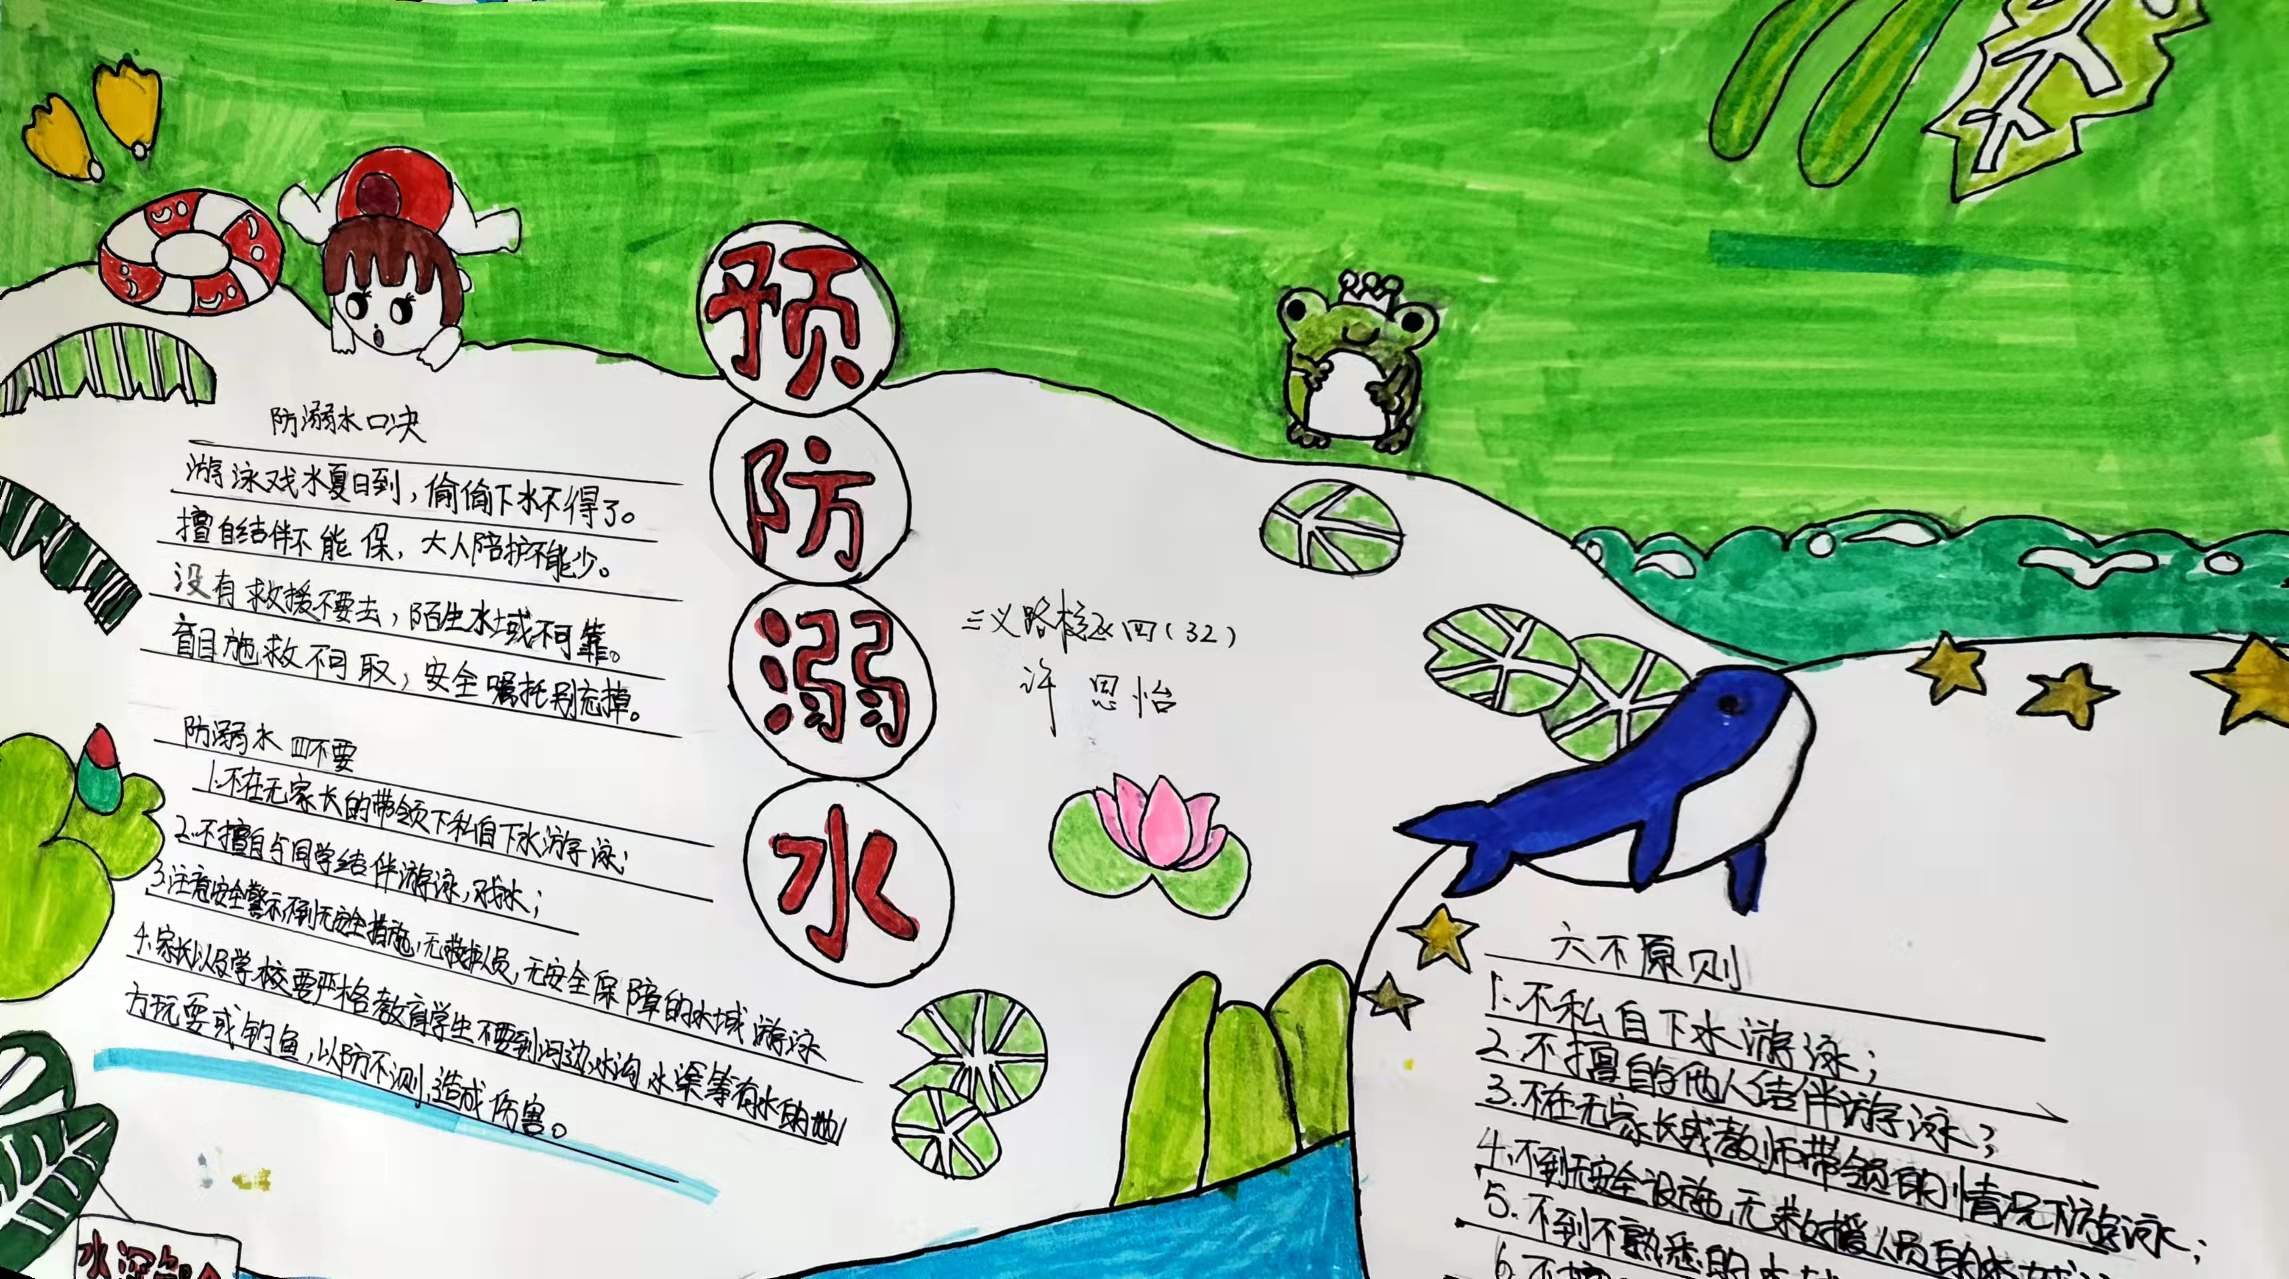 预
防
溺
水
防溺水口决
游泳戏水夏日到，偷偷下水不得了。
擅自结伴不能保，大人陪护不能少。
没有救援不要去，陌生水域不可靠。
盲目施救不可取，安全嘱托别忘掉。
防溺水四不要
1.不在无家长的带领下私自下水游泳；
2.不擅自与同学结伴游泳，戏水；
3.注意安全警示，不到无安全措施，无救护人员，无安全保障的水域游泳
4.家长以及学校要严格教育学生不要到河边水沟水渠等有水的地
方玩耍或钓鱼，以防不测，造成伤害。
三义路校区四（32）
许思怡
六不原则
1.不私自下水游泳；
2.不擅自与他人结伴游泳；
3.不在无家长或教师带领的情况下游泳；
4.不到无安全设施，无救援人员的水域
5.不到不熟悉的水域
6.不
水深